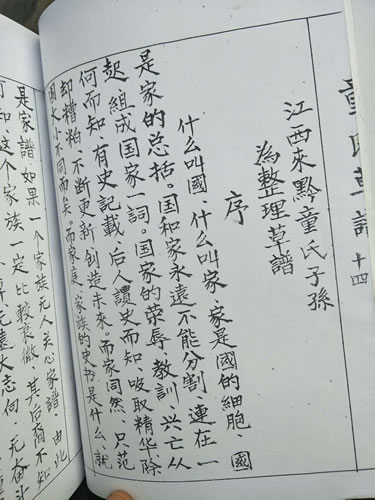 童氏草譜 十四
江西來黔童氏子孫
為整理草譜
序
什么叫國、什么叫家、家是國的细胞、國
是家的总括。国和家永遠不能分割、連在一
起組成国家一詞。国家的荣辱、教訓、兴亡从
何而知、有史記載、后人讀史而知、吸取精华、除
却糟粕不断更新创造未来。而家同然、只范
围大小不同而矣。而家庭、家族的史书是什么、就
是家譜。如果一个家族无人关心家譜、由此
可知、这个家族一定比較衰微、其后裔不知
无遠大志向、无奋斗